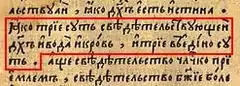 льствꙋѧй, ꙗ́кѡ дх҃ъ є҆́сть и҆́стина
Ꙗ҆́кѡ трїе́ сꙋ́ть свѣдѣ́тельствꙋющеи
дх҃ъ и҆ вода̀ и҆ кро́вь, и҆ трїѐ въ є҆ди́но сꙋ́
ть. а҆́ще свѣдѣ́тельство чл҃чко прї
е́млемъ, свѣдѣ́тельство бж҃їе боле